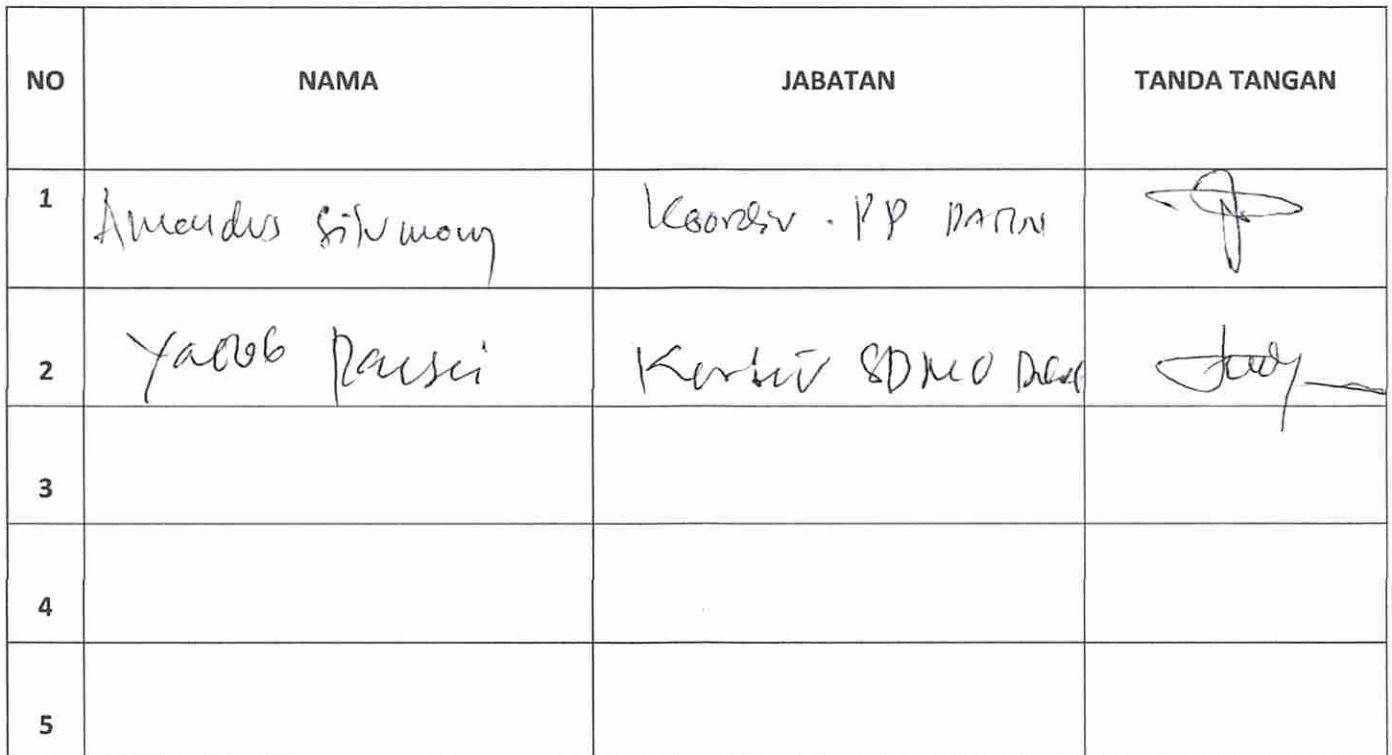 NO NAMA JABATAN TANDA TANGAN
1 Amandus Situmorang Koordiv . PP DATIN
2 Yacob Pausei Kordiv SDMO
3
4
5